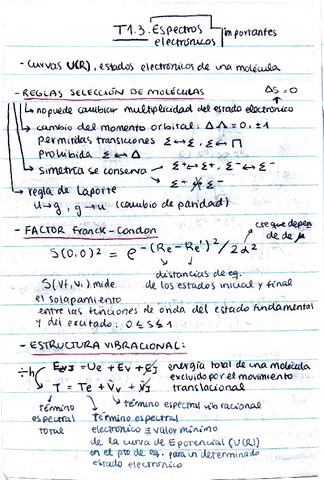 T1.3. Espectros electrónicos
importantes
- Curvas U(R), estados electrónicos de una molécula
- REGLAS SELECCIÓN DE MOLÉCULAS ΔS = 0
→ no puede cambiar multiplicidad del estado electrónico
→ cambio del momento orbital: ΔΛ = 0, ±1
permitidas transiciones Σ ↔ Σ, Σ ↔ Π
Prohibida Σ ↔ Δ
→ simetría se conserva → Σ+ ↔ Σ+, Σ- ↔ Σ-
↘ Σ+ ↮ Σ-
→ regla de Laporte
u → g, g → u (cambio de paridad)
- FACTOR Franck-Condon
cte que depen
de de μ
S(0,0)² = e^-(Re-Re')²/2α²
distancias de eq.
S(Vf,Vi) mide de los estados inicial y final
el solapamiento
entre las funciones de onda del estado fundamental
y del excitado: 0 ≤ S ≤ 1
- ESTRUCTURA VIBRACIONAL:
÷h Ee,v,J = Ue + Ev + EJ energía total de una molécula
excluido por el movimiento
T = Te + Vv + VJ translacional
término espectral total
término espectral vibracional
término espectral
electrónico ≡ valor mínimo
de la curva de Epotencial (U(R))
en el pto de eq. para un determinado
estado electrónico